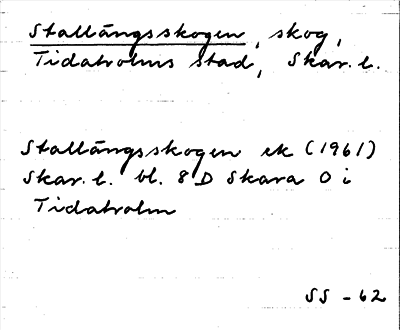 Stallängsskogen, skog,
Tidaholms stad, Skar. l.
Stallängsskogen ek (1961)
Skar. l. bl. 8 D Skara O i
Tidaholm
SS - 62